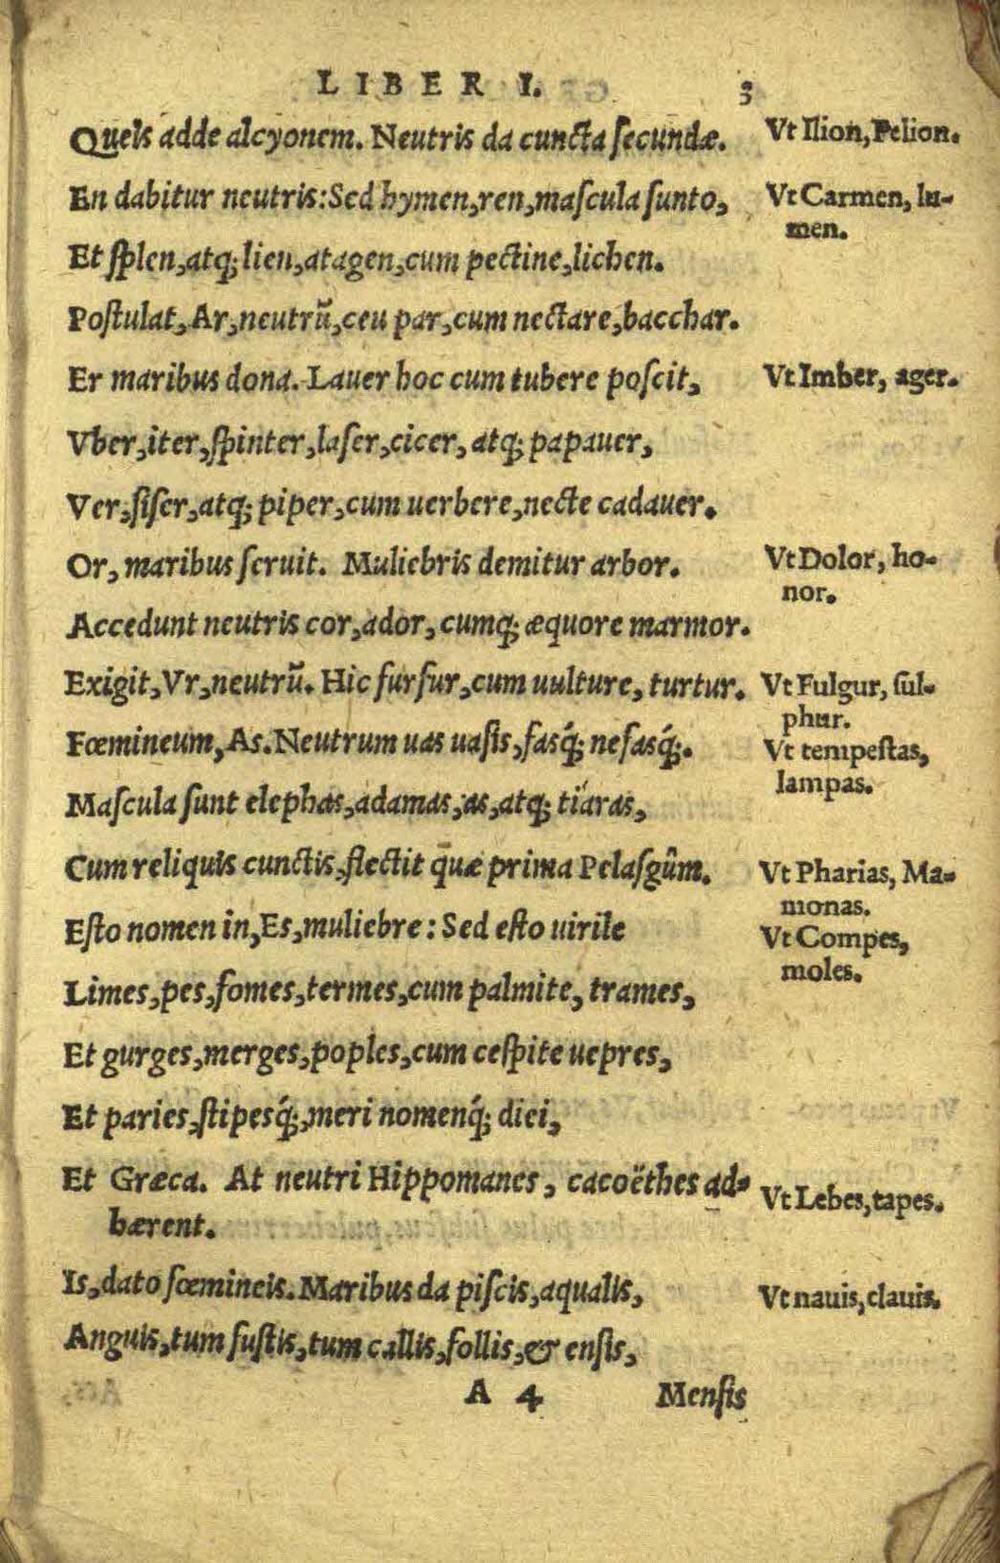 LIBER I. 3
Queîs adde alcyonem. Neutris da cuncta ſecundæ.
Vt Ilion, Pelion.
En dabitur neutris: Sed hymen, ren, maſcula ſunto,
Vt Carmen, lu-
men.
Et ſplen, atq; lien, atagen, cum pectine, lichen.
Poſtulat, Ar, neutrũ, ceu par, cum nectare, bacchar.
Er maribus dona. Lauer hoc cum tubere poſcit,
Vt Imber, ager.
Vber, iter, ſpinter, laſer, cicer, atq; papauer,
Ver, ſiſer, atq; piper, cum uerbere, necte cadauer.
Or, maribus ſeruit. Muliebris demitur arbor.
Vt Dolor, ho-
nor.
Accedunt neutris cor, ador, cumq; æquore marmor.
Exigit, Vr, neutrũ. Hic furfur, cum uulture, turtur.
Vt Fulgur, ſul-
phur.
Fœmineum, As. Neutrum uas uaſis, faſq́; nefaſq́;.
Vt tempeſtas,
lampas.
Maſcula ſunt elephas, adamas, as, atq; tiáras,
Cum reliquis cunctis, flectit quæ prima Pelaſgûm.
Vt Pharias, Ma-
monas.
Eſto nomen in, Es, muliebre: Sed eſto uirile
Vt Compes,
moles.
Limes, pes, fomes, termes, cum palmite, trames,
Et gurges, merges, poples, cum ceſpite uepres,
Et paries, ſtipesq́;, meri nomenq́; diei,
Et Græca. At neutri Hippomanes, cacoëthes ad-
hærent.
Vt Lebes, tapes.
Is, dato fœmineis. Maribus da piſcis, aqualis,
Vt nauis, clauis.
Anguis, tum fuſtis, tum callis, follis, & enſis,
A 4 Menſis